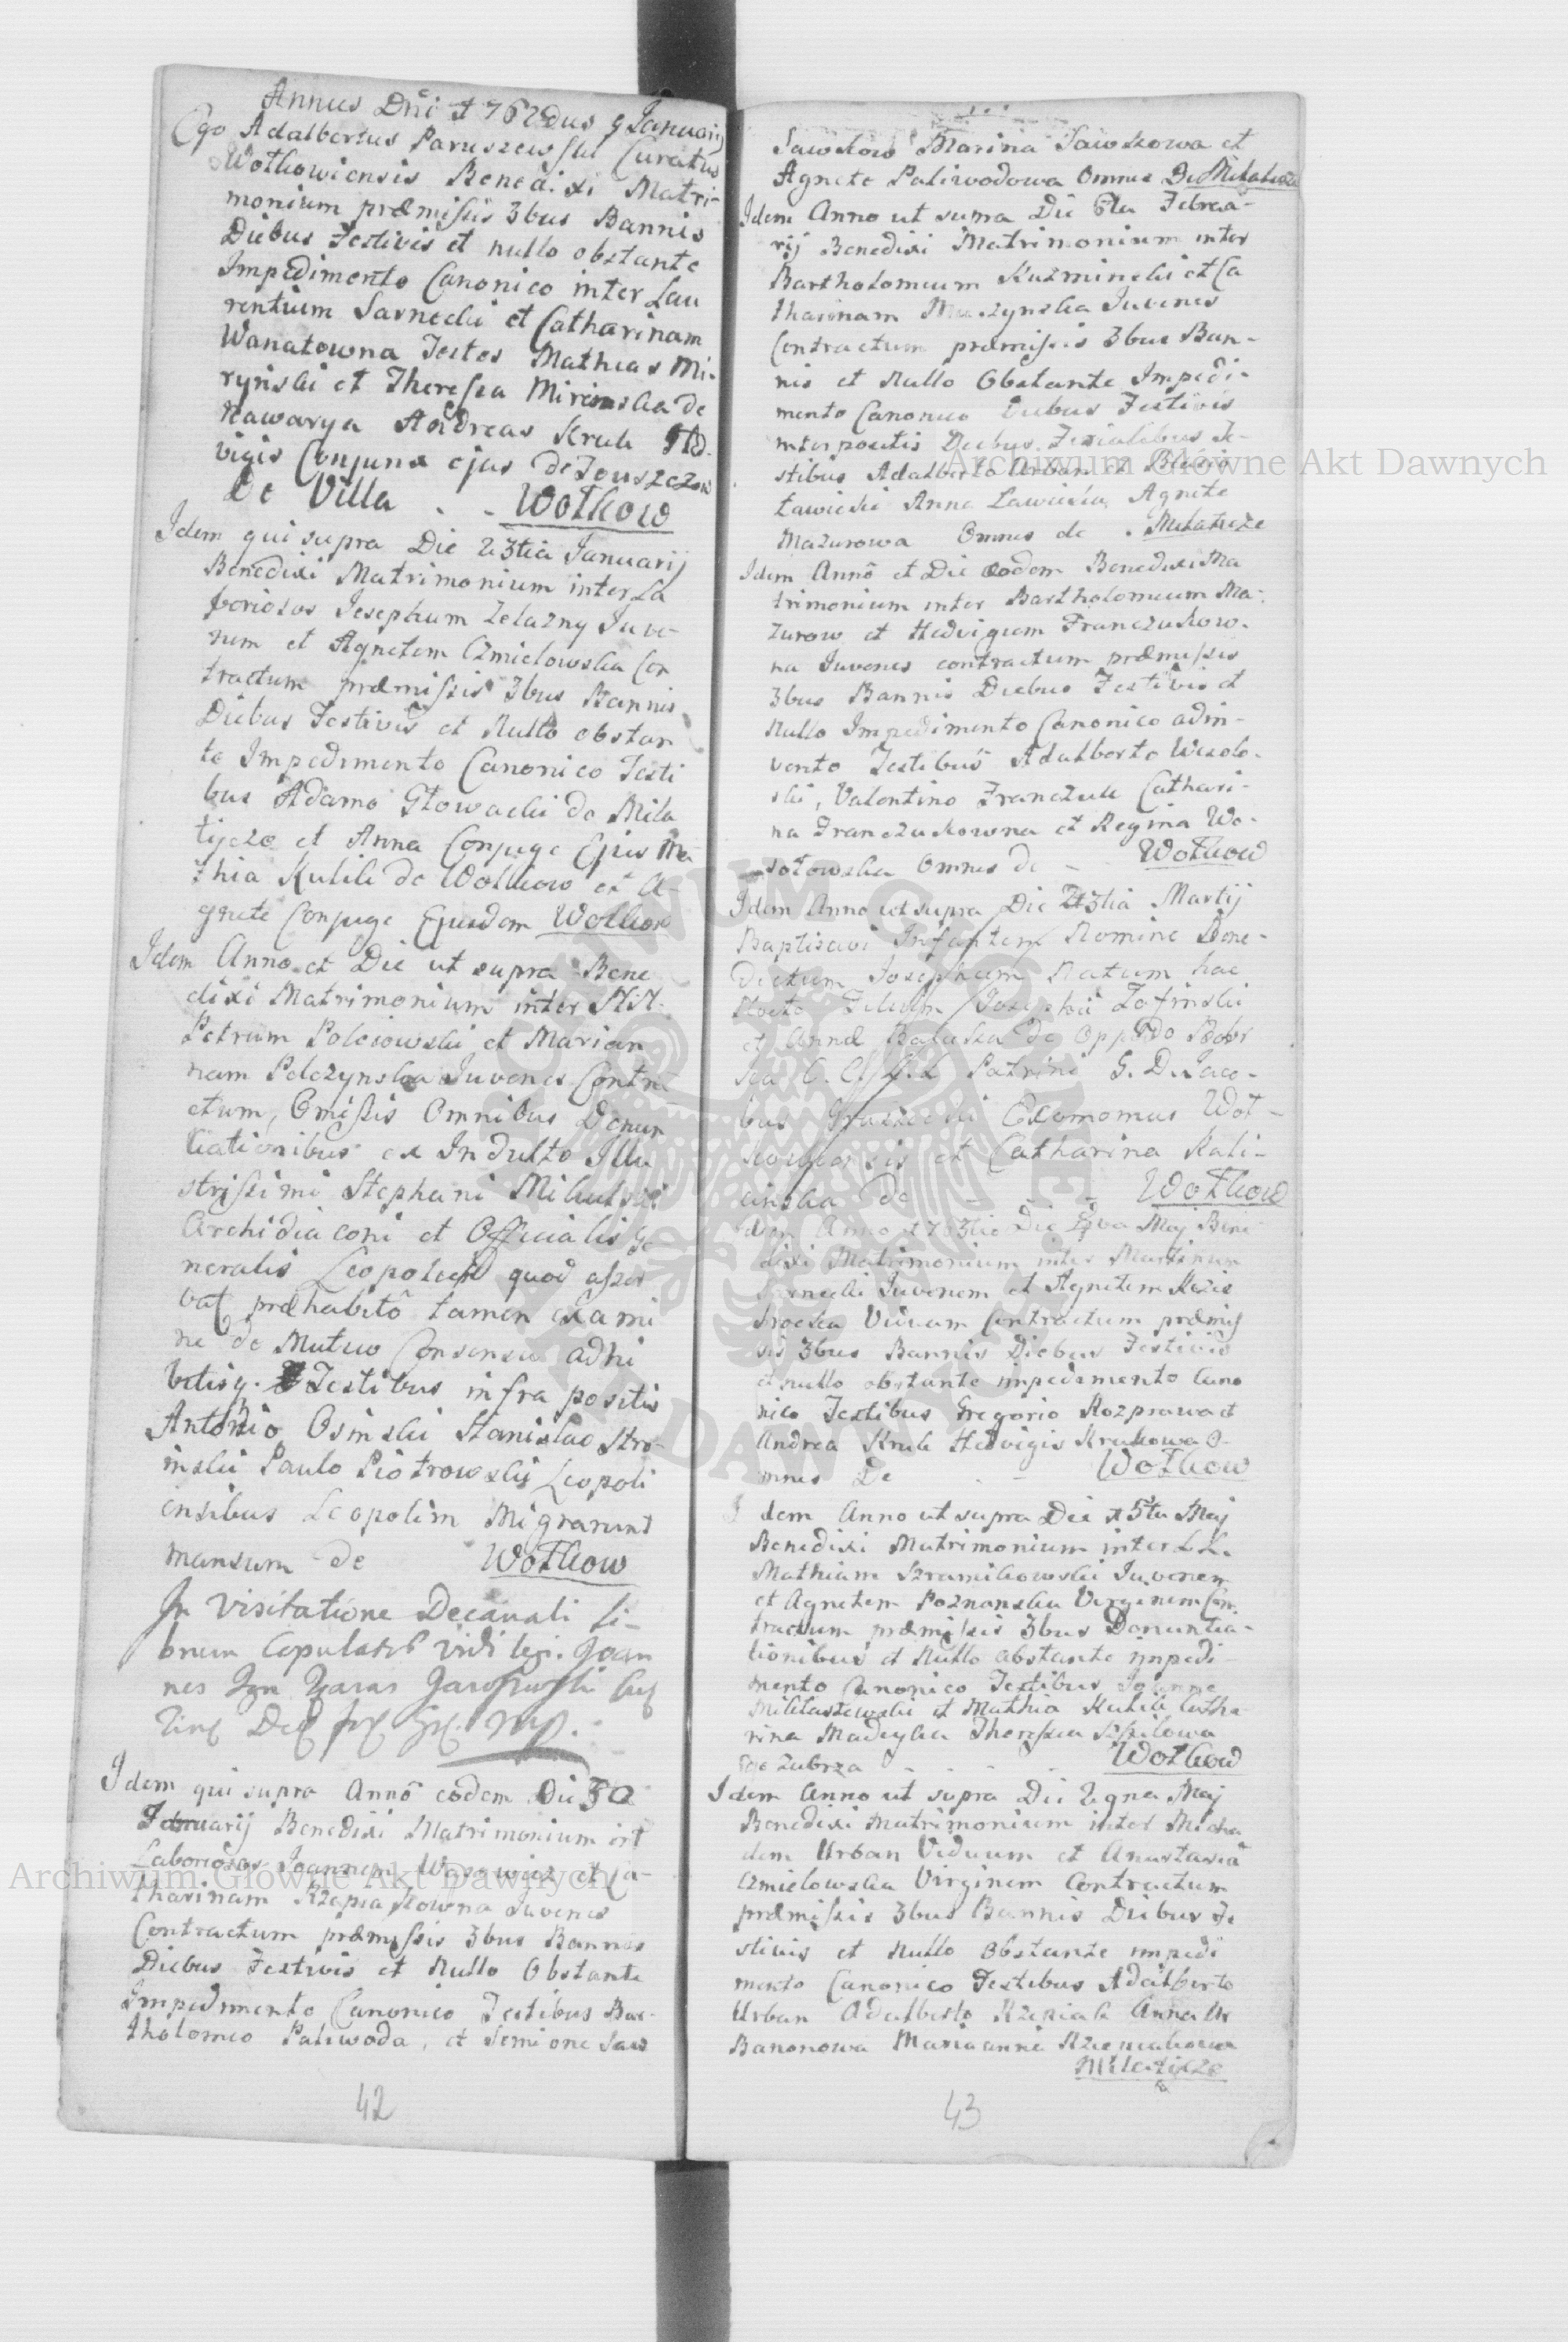 Annus Dni 1762dus 9 Januarij
Ego Adalbertus Paruszewski Curatus
Wołkowiensis Benedixi Matri-
monium præmissis 3bus Bannis
Diebus Festivis et nullo obstante
Impedimento Canonico inter Lau
rentium Sarnecki et Catharinam
Wanatowna Testes Mathias Mi-
ryński et Theressa Mirinska de
Nawarya Andreas Kruk Hed-
vigis Conjunx ejus de
De Villa - - Wołkow
Idem qui supra Die 23tia Januarij
Benedixi Matrimonium inter La
boriosos Josephum Zelazny Juve-
nem et Agnetem Czmielowska Con
tractum præmissis 3bus Bannis
Diebus Festivis et Nullo obstan
te Impedimento Canonico Testi
bus Adamo Głowacki de Mila
tijcze et Anna Conjuge Ejus Ma
thia Kulik de Wołkow et A-
gnete Conjuge Ejusdem Wołkow
Idem Anno et Die ut supra Bene
dixi Matrimonium inter NN.
Petrum Polciowski et Marian
nam Pelczynska Juvenes Contra
ctum, Omissis Omnibus Denun
tiationibus ex Indulto Illu
strissimi Stephani Mikulski
Archidiaconi et Officialis Ge
neralis quod asser
vat præhabitô tamen exami
ne de Mutuo Consensu adhi
bitisq. Testibus infra positis
Antonio Osinski Stanislao Stro-
inski Paulo Piotrowskij Leopoli
ensibus Leopolim Migrarunt
mansum de Wołkow
In Visitatione Decanali li-
brum Copulator vidi legi. Joan
nes
Idem qui supra Annô eodem Die 3a
Februarij Benedixi Matrimonium int
Laboriosos Joannem Wąsowicz et Ca-
tharinam Rzepiakowna Juvenes
Contractum præmissis 3bus Bannis
Diebus Festivis et Nullo Obstante
Impedimento Canonico Testibus Bar-
tholomeo Paliwoda, et Semione Saw
42
Sawkow Marina Sawkowa et
Agnete Paliwodowa Omnes De Milaticze
Idem Anno ut supra Die 6ta Februa-
rij Benedixi Matrimonium inter
Bartholomeum Kuzminski et Ca
tharinam Juvenes
Contractum præmissis 3bus Ban-
nis et Nullo Obstante Impedi-
mento Canonico Diebus Festivis
interpositis Diebus Ferialibus Te-
stibus Adalberto Urban et Blasio
Ławicki Anna Ławicka Agnete
Mazurowa Omnes de - Milaticze
Idem Annô et Die eodem Benedixi Ma
trimonium inter Bartholomeum Ma-
zurow et Hedvigem Franczukow-
na Juvenes contractum præmissis
3bus Bannis Diebus Festivis et
Nullo Impedimento Canonico adin-
vento Testibus Adalberto Wesolo-
ski, Valentino Franczuk Cathari-
na Franczukowna et Regina We-
sołowska Omnes de - Wołkow
Idem Anno ut supra Die 23tia Martij
Baptisavi Infantem Nomine Bene-
dictum Josephum Natum hac
Nocte Filium Josephi Zofinski
et Annæ de Oppido Bobr
Patrini G. D. Jaco-
bus Œconomus Woł-
kowiensis et Catharina Kali-
cinska de - - - Wołkow
Idem Anno 1763tio Die Maj Bene
dixi Matrimonium inter Martinum
Sarnecki Juvenem et Agnetem
Viduam Contractum præmis
sis 3bus Bannis Diebus Festivis
et nullo obstante impedimento Cano
nico Testibus Gregorio Rozprawa et
Andrea Kruk Hedvigis Krukowa O-
mnes De - - Wołkow
Idem Anno ut supra Die 15ta Maj
Benedixi Matrimonium inter LL.
Mathiam Szramikowski Juvenem
et Agnetem Poznanska Virginem Con-
tractum præmissis 3bus Denuntia-
tionibus et Nullo obstante impedi-
mento Canonico Testibus Joanne
Militastewski et Mathia Kulik Catha-
rina Madeyka Theressa
de Zubrza - - - - Wołkow
Idem Anno ut supra Die Maj
Benedixi Matrimonium inter Micha
elem Urban Viduum et Anastasia
Czmielowska Virginem Contractum
præmissis 3bus Bannis Diebus Fe
stivis et Nullo Obstante impedi
mento Canonico Testibus Adalberto
Urban Adalberto Rzepiak Anna Ur
Banonowa Marianna
Milaticze
43
Archiwum Główne Akt Dawnych
Archiwum Główne Akt Dawnych
ARCHIWUM GŁÓWNE AKT DAWNYCH